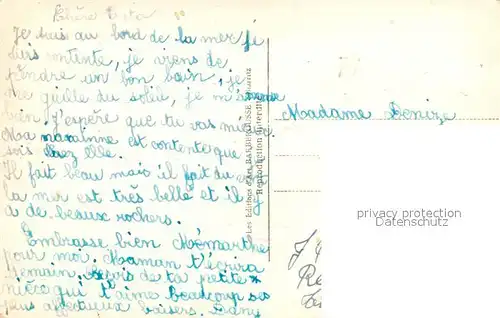 Chère Tata
Je suis au bord de la mer je
suis contente, je viens de
prendre un bon bain, je
me grille du soleil, je m'amuse
bien. J'espère que tu vas mieux.
Ma marainne est contente que
sois chez elle.
Il fait beau mais il fait du vent
la mer est très belle et il y
a de beaux rochers.
Embrasse bien Mémarthe
pour moi. Maman t'écrira
demain. Reçois de ta petite
nièce qui t'aime beaucoup ses
plus affectueux baisers. Dany
Les Editions d'Art
Reproduction interdite
Madame Denize
privacy protection
Datenschutz